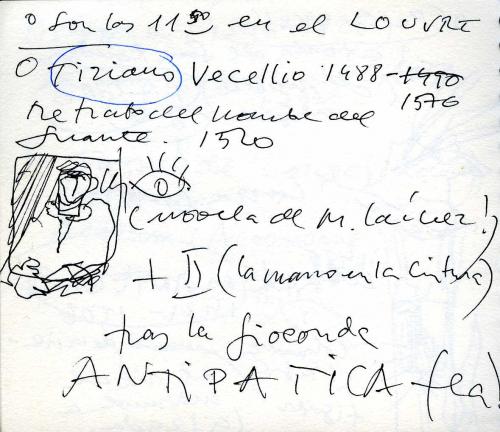 Son las 11 30 en el LOUVRE
Tiziano Vecellio 1488-1490
1576
Retrato del hombre del
guante. 1520
(novela de M. Laínez!)
+ II (la mano en la cintura)
tras la Gioconda
ANTIPATICA fea!